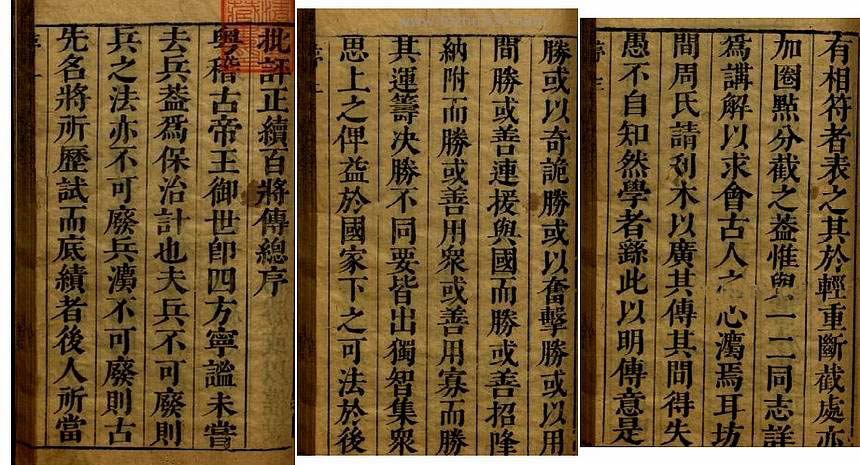 批評正續百將傳總序
粤稽古帝王御世卽四方寧謐未嘗
去兵葢爲保治計也夫兵不可廢則
兵之法亦不可廢兵灋不可廢則古
先名將所歷試而底績者後人所當
序一
勝或以奇詭勝或以奮擊勝或以用
間勝或善連援與國而勝或善招降
納附而勝或善用衆或善用寡而勝
其運籌决勝不同要皆出獨智集衆
思上之俾益於國家下之可法於後
序二
有相符者表之其於輕重斷截處亦
加圈點分截之葢惟與一二同志詳
爲講解以求會古人之心灋焉耳坊
間周氏請刻木以廣其傳其間得失
愚不自知然學者繇此以明傳意是
序三